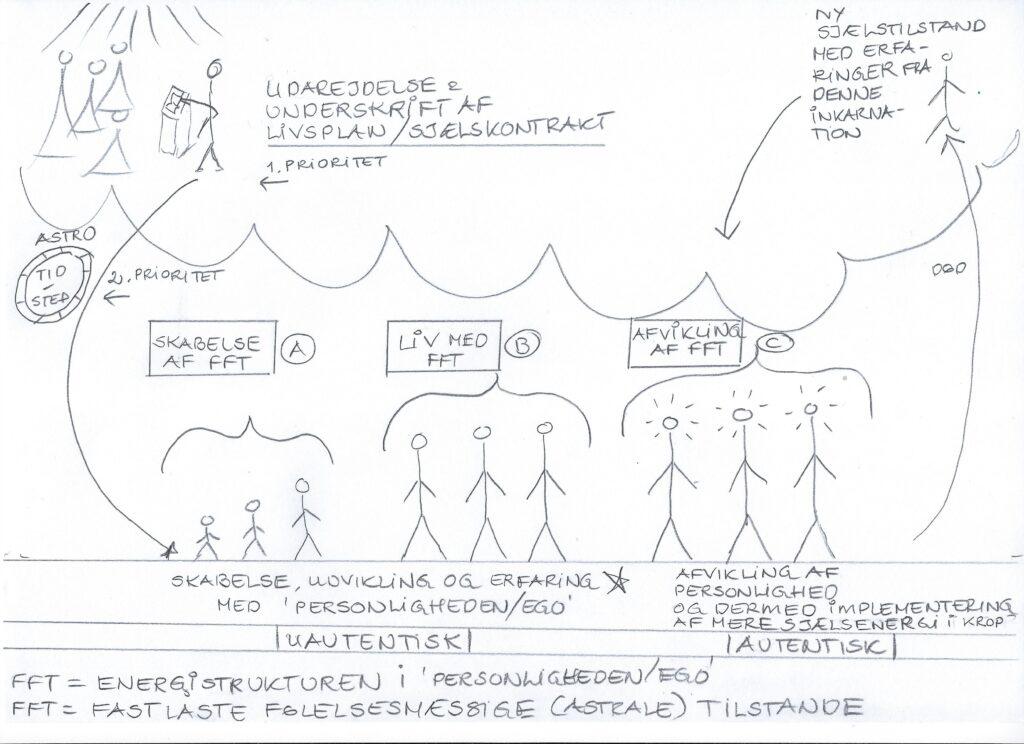 UDAREJDELSE &
UNDERSKRIFT AF
LIVSPLAN/SJÆLSKONTRAKT
1. PRIORITET
NY
SJÆLSTILSTAND
MED ERFA-
RINGER FRA
DENNE
INKARNA-
TION
ASTRO
TID
STED
2. PRIORITET
DØD
SKABELSE
AF FFT
A
LIV MED
FFT
B
AFVIKLING
AF FFT
C
SKABELSE, UDVIKLING OG ERFARING
MED 'PERSONLIGHEDEN/EGO'
AFVIKLING AF
PERSONLIGHED
OG DERMED IMPLEMENTERING
AF MERE SJÆLSENERGI I KROP
UAUTENTISK
AUTENTISK
FFT = ENERGISTRUKTUREN I 'PERSONLIGHEDEN/EGO'
FFT = FASTLÅSTE FØLELSESMÆSSIGE (ASTRALE) TILSTANDE